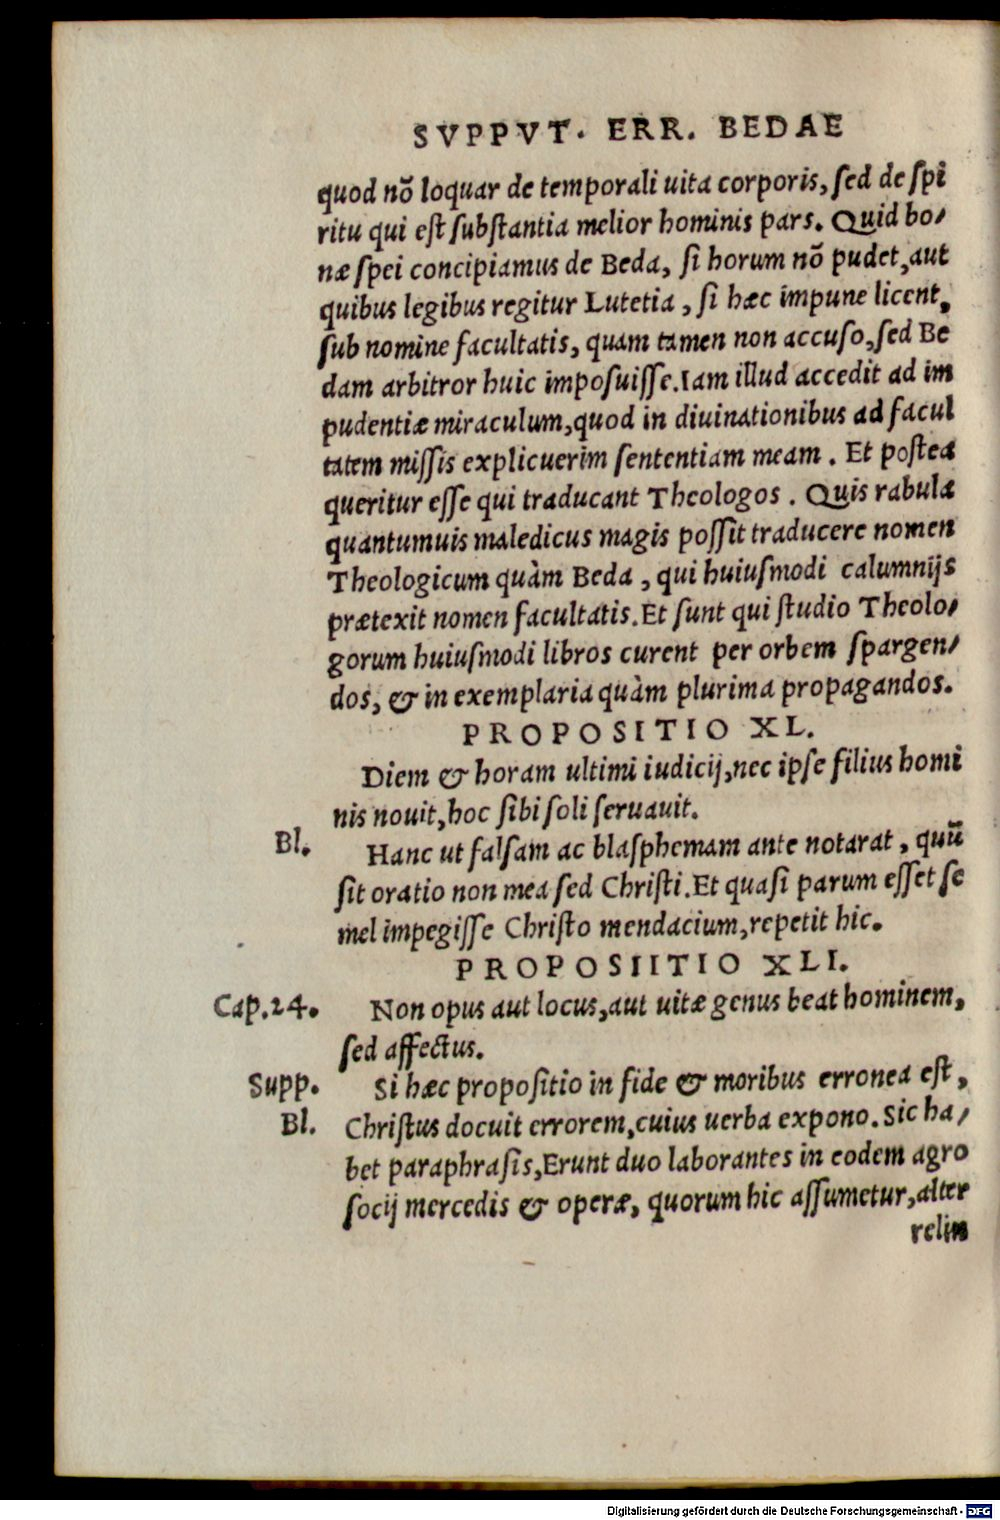 SVPPVT. ERR. BEDAE
quod nõ loquar de temporali uita corporis, sed de spi
ritu qui est substantia melior hominis pars. Quid bo/
næ spei concipiamus de Beda, si horum nõ pudet, aut
quibus legibus regitur Lutetia, si hæc impune licent,
sub nomine facultatis, quam tamen non accuso, sed Be
dam arbitror huic imposuisse. Iam illud accedit ad im
pudentiæ miraculum, quod in diuinationibus ad facul
tatem missis explicuerim sententiam meam. Et postea
queritur esse qui traducant Theologos. Quis rabula
quantumuis maledicus magis possit traducere nomen
Theologicum quàm Beda, qui huiusmodi calumnijs
prætexit nomen facultatis. Et sunt qui studio Theolo/
gorum huiusmodi libros curent per orbem spargen/
dos, & in exemplaria quàm plurima propagandos.
PROPOSITIO XL.
Diem & horam ultimi iudicij, nec ipse filius homi
nis nouit, hoc sibi soli seruauit.
Bl. Hanc ut falsam ac blasphemam ante notarat, quũ
sit oratio non mea sed Christi. Et quasi parum esset se
mel impegisse Christo mendacium, repetit hic.
PROPOSIITIO XLI.
Cap.24. Non opus aut locus, aut uitæ genus beat hominem,
sed affectus.
Supp. Si hæc propositio in fide & moribus erronea est,
Bl. Christus docuit errorem, cuius uerba expono. Sic ha/
bet paraphrasis, Erunt duo laborantes in eodem agro
socij mercedis & operæ, quorum hic assumetur, alter
relin
Digitalisierung gefördert durch die Deutsche Forschungsgemeinschaft - DFG